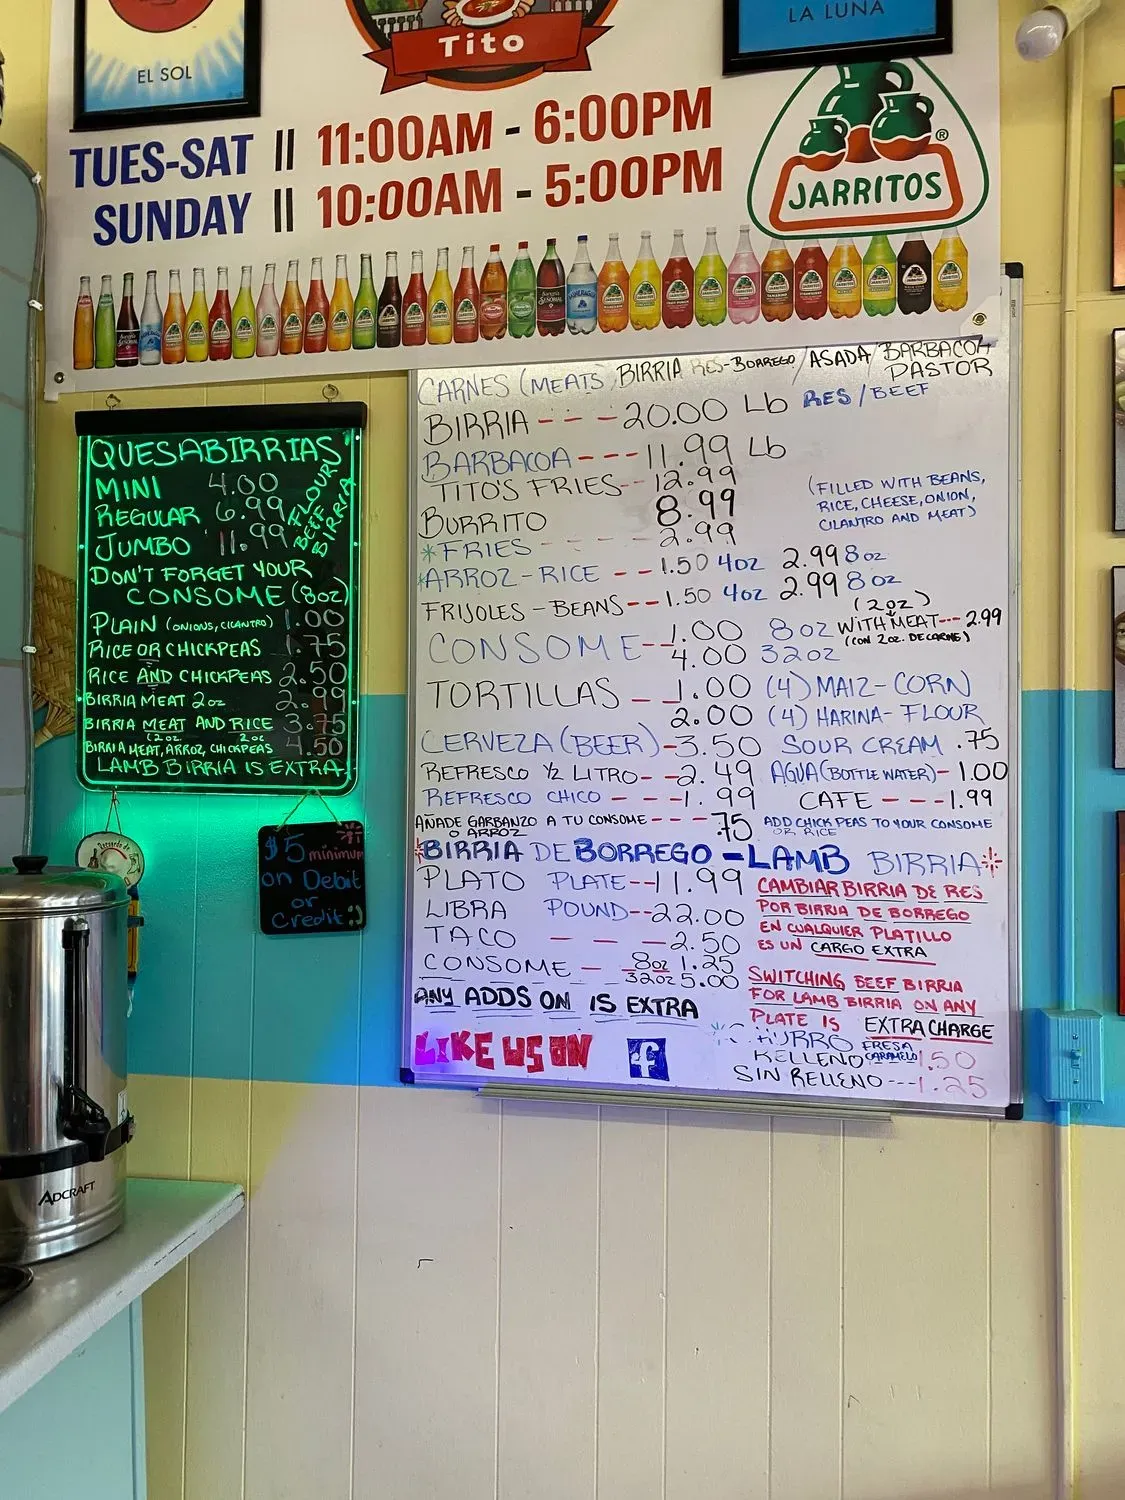 EL SOL
Tito
LA LUNA
TUES-SAT || 11:00AM - 6:00PM
SUNDAY || 10:00AM - 5:00PM
JARRITOS ®
QUESABIRRIAS
MINI 4.00
REGULAR 6.99
JUMBO 11.99
FLOUR
BEEF
BIRRIA
DON'T FORGET YOUR
CONSOME (8oz)
PLAIN (ONIONS, CILANTRO) 1.00
RICE OR CHICKPEAS 1.75
RICE AND CHICKPEAS 2.50
BIRRIA MEAT 2oz 2.99
BIRRIA MEAT AND RICE 3.75
(2oz 2oz
BIRRIA MEAT, ARROZ, CHICKPEAS 4.50
LAMB BIRRIA IS EXTRA.
$5 minimum
on Debit
or
Credit :)
ADCRAFT
CARNES (MEATS BIRRIA RES-BORREGO / ASADA / BARBACOA
PASTOR
BIRRIA - - - - 20.00 Lb RES / BEEF
BARBACOA - - - 11.99 Lb
TITO'S FRIES - - 12.99
BURRITO 8.99
(FILLED WITH BEANS,
RICE, CHEESE, ONION,
CILANTRO AND MEAT)
*FRIES - - - - 2.99
*ARROZ - RICE - - 1.50 4oz 2.99 8oz
FRIJOLES - BEANS - - 1.50 4oz 2.99 8oz
CONSOME - - 1.00 8oz
4.00 32oz
(2oz)
WITH MEAT - - - 2.99
(CON 2oz. DE CARNE)
TORTILLAS - 1.00 (4) MAIZ - CORN
2.00 (4) HARINA - FLOUR
CERVEZA (BEER) - 3.50 SOUR CREAM .75
REFRESCO ½ LITRO - - 2.49 AGUA (BOTTLE WATER) - 1.00
REFRESCO CHICO - - - 1.99 CAFE - - - 1.99
AÑADE GARBANZO A TU CONSOME - - - .75 ADD CHICKPEAS TO YOUR CONSOME
O ARROZ OR RICE
BIRRIA DE BORREGO - LAMB BIRRIA
PLATO PLATE - - 11.99
LIBRA POUND - - 22.00
TACO - - - 2.50
CONSOME - 8oz 1.25
32oz 5.00
ANY ADDS ON IS EXTRA
LIKE US ON f
CAMBIAR BIRRIA DE RES
POR BIRRIA DE BORREGO
EN CUALQUIER PLATILLO
ES UN CARGO EXTRA
SWITCHING BEEF BIRRIA
FOR LAMB BIRRIA ON ANY
PLATE IS EXTRA CHARGE
CHURRO FRESA
RELLENO CARAMELO 1.50
SIN RELLENO - - - 1.25